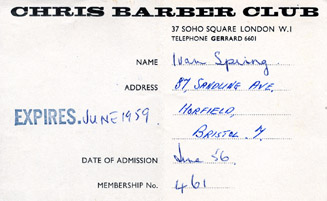 CHRIS BARBER CLUB
37 SOHO SQUARE LONDON W.1
TELEPHONE GERRARD 6601
NAME Ivan Spring
ADDRESS 87, Sandling Ave,
Horfield,
EXPIRES. JUNE 1959
Bristol. 7.
DATE OF ADMISSION June 56
MEMBERSHIP No. 461